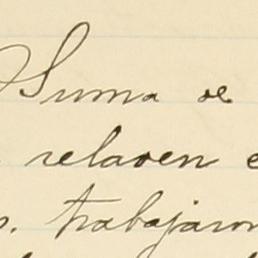 Suma de
relaven e
s. trabajaron